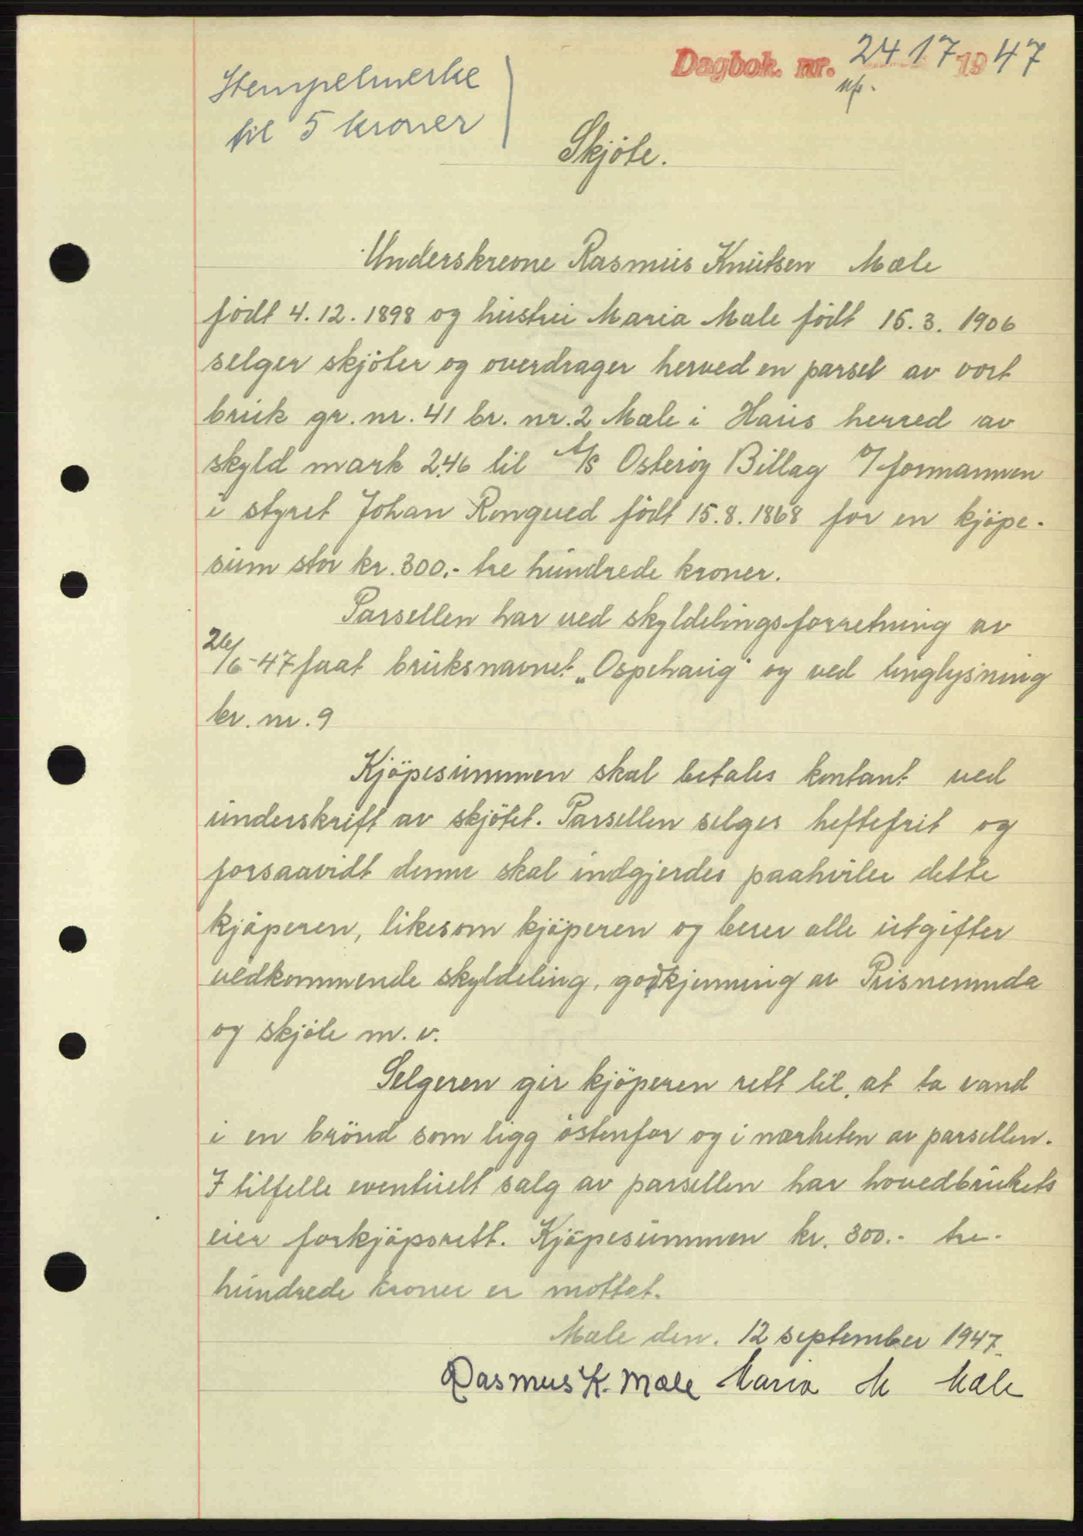 Stempelmerke
til 5 kroner
Dagbok. nr. 2417 1947
Skjöte.
Underskrevne Rasmus Knutsen Mæle
födt 4.12.1898 og hustru Maria Mæle födt 15.3.1906
selger skjöter og overdrager herved en parsel av vort
bruk gr. nr. 41 br. nr. 2 Mæle i Haus herred av
skyld mark 2,46 til A/S Osteröy Billag v/ formannen
i styret Johan Rongved födt 15.8.1868 for en kjöpe-
sum stor kr. 300,- tre hundrede kroner.
Parsellen har ved skyldelingsforretning av
26/6-47 faat bruksnavnet "Ospehaug" og ved tinglysning
br. nr. 9
Kjöpesummen skal betales kontant ved
underskrift av skjötet. Parsellen selges heftefrit og
forsaavidt denne skal indgjerdes paahviler dette
kjöperen, likesom kjöperen og berer alle utgifter
vedkommende skyldeling, godkjenning av Prisnemnda
og skjöte m. v.
Selgeren gir kjöperen rett til, at ta vand
i en brönd som ligg östenfor og i nærheten av parsellen.
I tilfelle eventuelt salg av parsellen har hovedbrukets
eier forkjöpsrett. Kjöpesummen kr. 300.- tre-
hundrede kroner er mottat.
Mæle den. 12 september 1947.
Rasmus K. Mæle Maria M Mæle